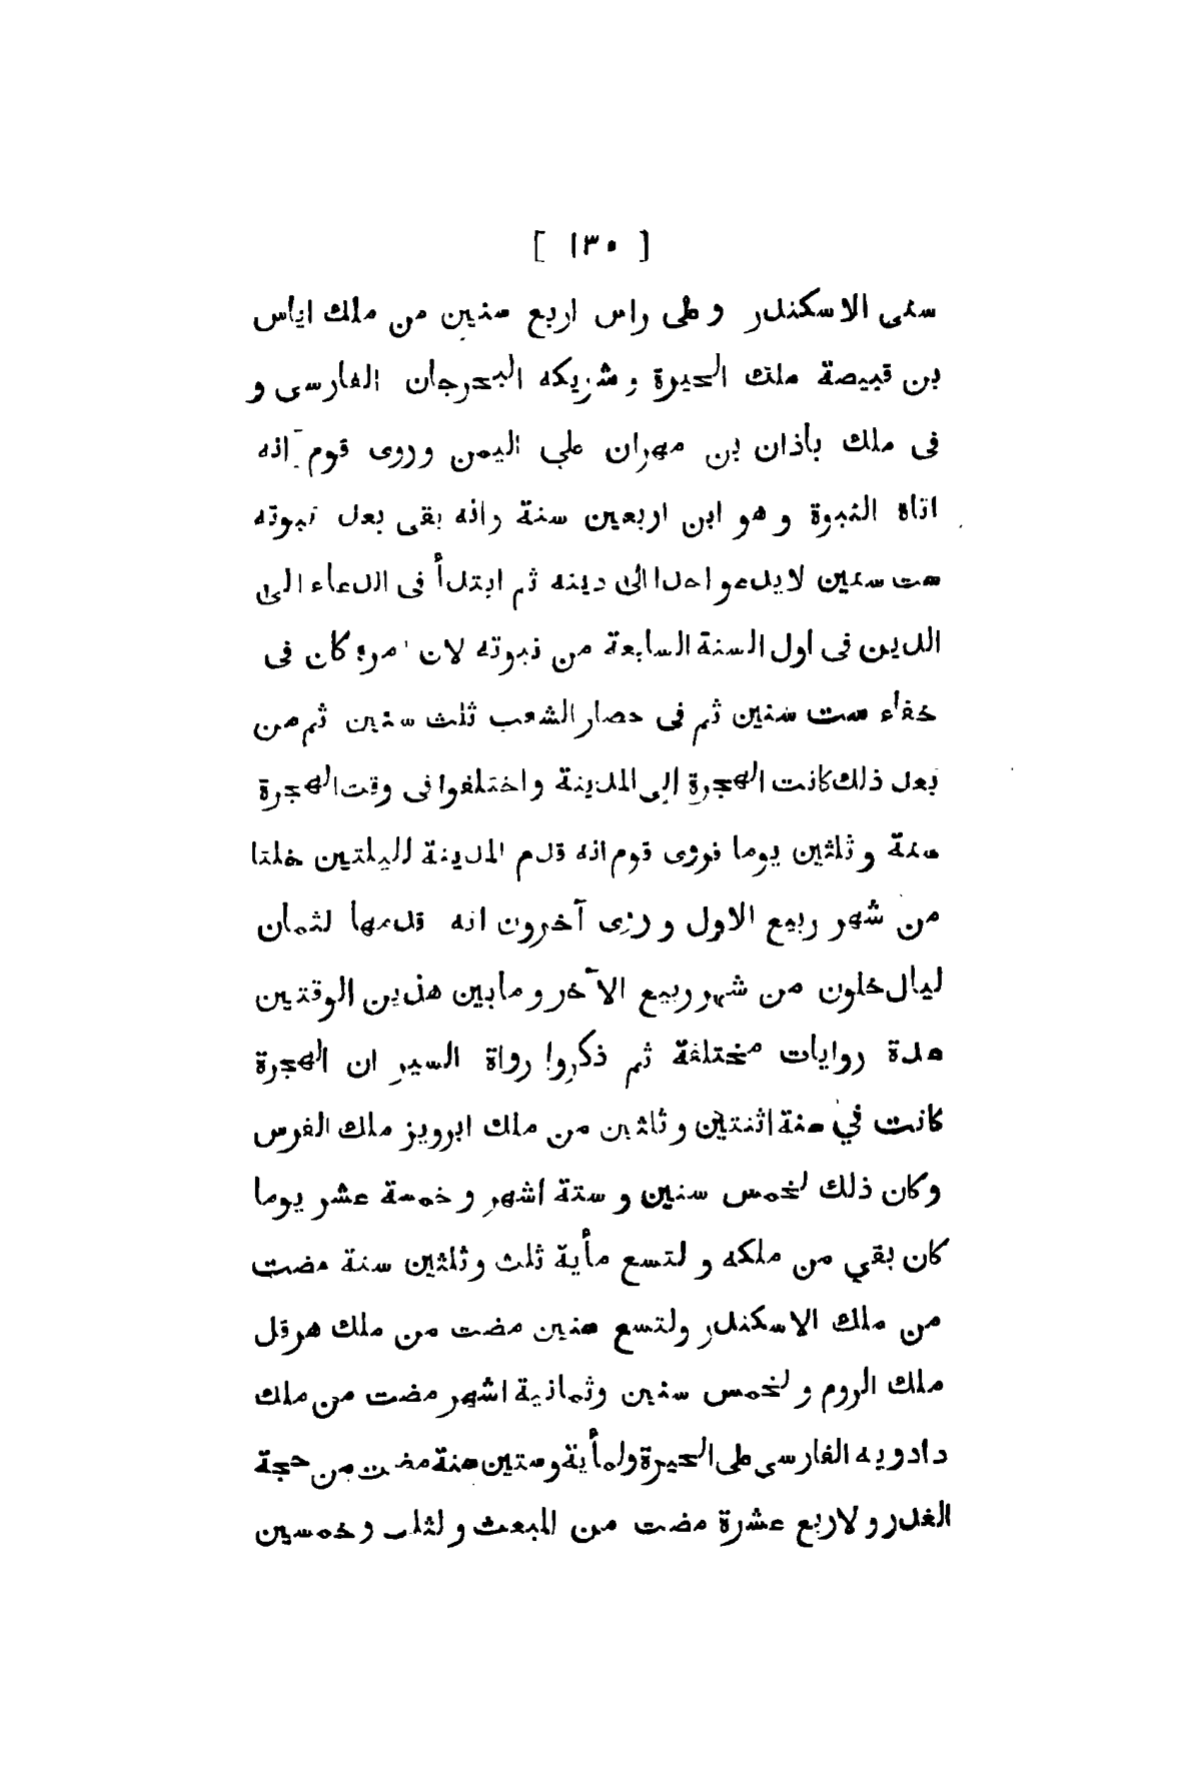 [ ١٣٠ ]
سنى الاسكندر و على راس اربع سنين من ملك اياس
بن قبيصة ملك الحيرة و شريكه البحرجان الفارسى و
فى ملك باذان بن مهران على اليمن وروى قوم انه
اتاه النبوة و هو ابن اربعين سنة وانه بقى بعد نبوته
ست سنين لايدعو احدا الى دينه ثم ابتدأ فى الدعاء الى
الدين فى اول السنة السابعة من نبوته لان امره كان فى
خفاء ست سنين ثم فى حصار الشعب ثلث سنين ثم من
بعد ذلك كانت الهجرة إلى المدينة واختلفوا فى وقت الهجرة
ستة و ثلثين يوما فروى قوم انه قدم المدينة لليلتين خلتا
من شهر ربيع الاول و روى آخرون انه قدمها لثمان
ليال خلون من شهر ربيع الآخر و مابين هذين الوقتين
مدة روايات مختلفة ثم ذكروا رواة السير ان الهجرة
كانت في سنة اثنتين و ثلثين من ملك ابرويز ملك الفرس
وكان ذلك لخمس سنين و ستة اشهر و خمسة عشر يوما
كان بقي من ملكه و لتسع مأية ثلث وثلثين سنة مضت
من ملك الاسكندر ولتسع سنين مضت من ملك هرقل
ملك الروم و لخمس سنين وثمانية اشهر مضت من ملك
دادويه الفارسى على الحيرة ولمأية وستين سنة مضت من حجة
الغدر و لاربع عشرة مضت من المبعث و لثلث وخمسين